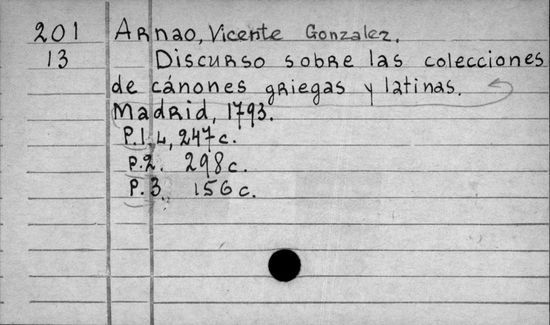 201 Arnao, Vicente Gonzalez.
13 Discurso sobre las colecciones
de cánones griegas y latinas.
Madrid, 1793.
P.1. 4, 247c.
P.2. 298c.
P.3. 156c.